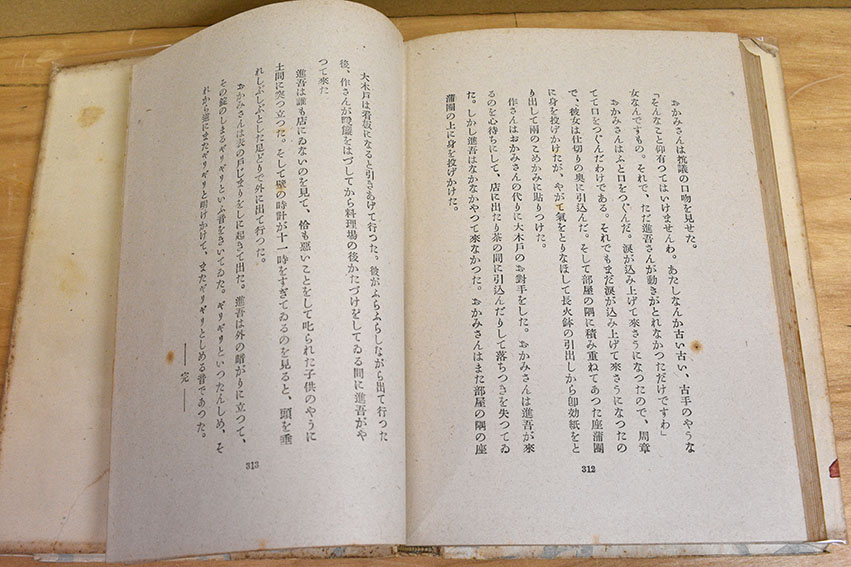 おかみさんは抗議の口吻を見せた。
「そんなこと仰有つてはいけませんわ。あたしなんか古い古い、古手のやうな
女なんですもの。それで、ただ進吾さんが動きがとれなかつただけですわ」
おかみさんはふと口をつぐんだ。涙が込み上げて來さうになつたので、周章
てて口をつぐんだわけである。それでもまだ涙が込み上げて來さうになつたの
で、彼女は仕切りの奥に引込んだ。そして部屋の隅に積み重ねてあつた座蒲團
に身を投げかけたが、やがて氣をとりなほして長火鉢の引出しから卽効紙をと
り出して兩のこめかみに貼りつけた。
作さんはおかみさんの代りに大木戸のお對手をした。おかみさんは進吾が來
るのを心待ちにして、店に出たり茶の間に引込んだりして落ちつきを失つてゐ
た。しかし進吾はなかなかやつて來なかつた。おかみさんはまた部屋の隅の座
蒲團の上に身を投げかけた。
312
大木戸は看板になると引きあげて行つた。彼がふらふらしながら出て行つた
後、作さんが暖簾をはづしてから料理場の後かたづけをしてゐる間に進吾がや
つて來た
進吾は誰も店にゐないのを見て、恰も惡いことをして叱られた子供のやうに
土間に突つ立つた。そして壁の時計が十一時をすぎてゐるのを見ると、頭を垂
れしぶしぶとした足どりで外に出て行つた。
おかみさんは表の戸じまりをしに起きて出た。進吾は外の暗がりに立つて、
その錠のしまるギリギリといふ音をきいてゐた。ギリギリといつたんしめ、そ
れから徐にまたギリギリと明けかけて、またギリギリとしめる音であつた。
―― 完 ――
313